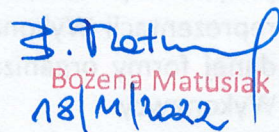 B. Matu
Bożena Matusiak
18/11/2022